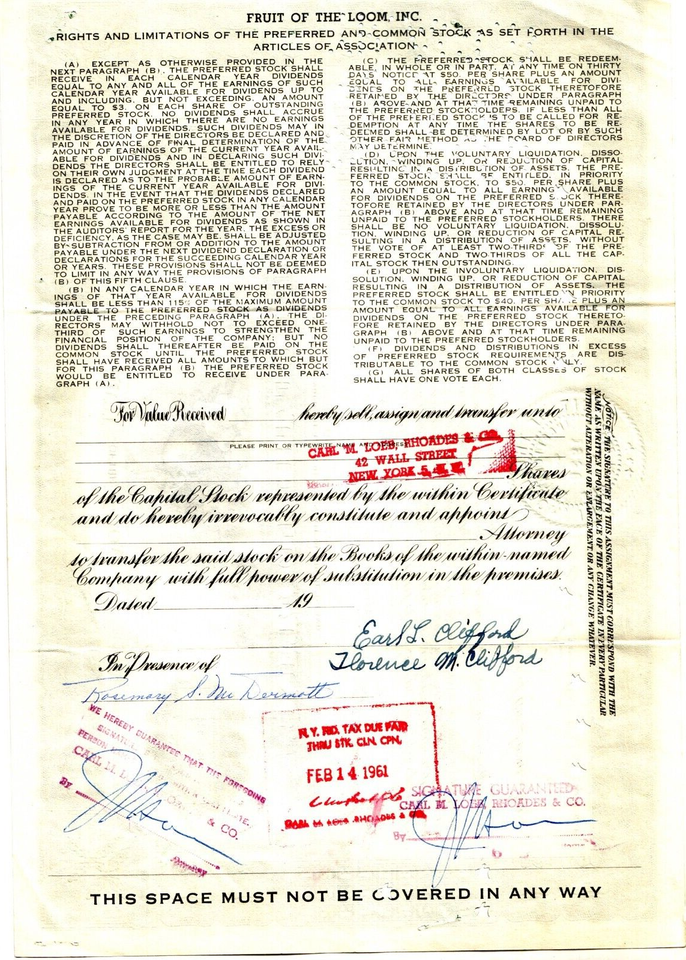 FRUIT OF THE LOOM, INC.
RIGHTS AND LIMITATIONS OF THE PREFERRED AND COMMON STOCK AS SET FORTH IN THE
ARTICLES OF ASSOCIATION
(A) EXCEPT AS OTHERWISE PROVIDED IN THE
NEXT PARAGRAPH (B), THE PREFERRED STOCK SHALL
RECEIVE IN EACH CALENDAR YEAR DIVIDENDS
EQUAL TO ANY AND ALL OF THE EARNINGS OF SUCH
CALENDAR YEAR AVAILABLE FOR DIVIDENDS UP TO
AND INCLUDING, BUT NOT EXCEEDING, AN AMOUNT
EQUAL TO $3. ON EACH SHARE OF OUTSTANDING
PREFERRED STOCK. NO DIVIDENDS SHALL ACCRUE
IN ANY YEAR IN WHICH THERE ARE NO EARNINGS
AVAILABLE FOR DIVIDENDS. SUCH DIVIDENDS MAY IN
THE DISCRETION OF THE DIRECTORS BE DECLARED AND
PAID IN ADVANCE OF FINAL DETERMINATION OF THE
AMOUNT OF EARNINGS OF THE CURRENT YEAR AVAIL-
ABLE FOR DIVIDENDS AND IN DECLARING SUCH DIVI-
DENDS THE DIRECTORS SHALL BE ENTITLED TO RELY
ON THEIR OWN JUDGMENT AT THE TIME EACH DIVIDEND
IS DECLARED AS TO THE PROBABLE AMOUNT OF EARN-
INGS OF THE CURRENT YEAR AVAILABLE FOR DIVI-
DENDS. IN THE EVENT THAT THE DIVIDENDS DECLARED
AND PAID ON THE PREFERRED STOCK IN ANY CALENDAR
YEAR PROVE TO BE MORE OR LESS THAN THE AMOUNT
PAYABLE ACCORDING TO THE AMOUNT OF THE NET
EARNINGS AVAILABLE FOR DIVIDENDS AS SHOWN IN
THE AUDITORS' REPORT FOR THE YEAR, THE EXCESS OR
DEFICIENCY, AS THE CASE MAY BE, SHALL BE ADJUSTED
BY SUBTRACTION FROM OR ADDITION TO THE AMOUNT
PAYABLE UNDER THE NEXT DIVIDEND DECLARATION OR
DECLARATIONS FOR THE SUCCEEDING CALENDAR YEAR
OR YEARS. THESE PROVISIONS SHALL NOT BE DEEMED
TO LIMIT IN ANY WAY THE PROVISIONS OF PARAGRAPH
(B) OF THIS FIFTH CLAUSE.
(B) IN ANY CALENDAR YEAR IN WHICH THE EARN-
INGS OF THAT YEAR AVAILABLE FOR DIVIDENDS
SHALL BE LESS THAN 115% OF THE MAXIMUM AMOUNT
PAYABLE TO THE PREFERRED STOCK AS DIVIDENDS
UNDER THE PRECEDING PARAGRAPH (A), THE DI-
RECTORS MAY WITHHOLD NOT TO EXCEED ONE
THIRD OF SUCH EARNINGS TO STRENGTHEN THE
FINANCIAL POSITION OF THE COMPANY; BUT NO
DIVIDENDS SHALL THEREAFTER BE PAID ON THE
COMMON STOCK UNTIL THE PREFERRED STOCK
SHALL HAVE RECEIVED ALL AMOUNTS TO WHICH BUT
FOR THIS PARAGRAPH (B) THE PREFERRED STOCK
WOULD BE ENTITLED TO RECEIVE UNDER PARA-
GRAPH (A).
(C) THE PREFERRED STOCK SHALL BE REDEEM-
ABLE, IN WHOLE OR IN PART, AT ANY TIME ON THIRTY
DAYS NOTICE AT $50. PER SHARE PLUS AN AMOUNT
EQUAL TO ALL EARNINGS AVAILABLE FOR DIVI-
DENDS ON THE PREFERRED STOCK THERETOFORE
RETAINED BY THE DIRECTORS UNDER PARAGRAPH
(B) ABOVE AND AT THAT TIME REMAINING UNPAID TO
THE PREFERRED STOCKHOLDERS. IF LESS THAN ALL
OF THE PREFERRED STOCK IS TO BE CALLED FOR RE-
DEMPTION AT ANY TIME THE SHARES TO BE RE-
DEEMED SHALL BE DETERMINED BY LOT OR BY SUCH
OTHER FAIR METHOD AS THE BOARD OF DIRECTORS
MAY DETERMINE.
(D) UPON THE VOLUNTARY LIQUIDATION, DISSO-
LUTION, WINDING UP, OR REDUCTION OF CAPITAL
RESULTING IN A DISTRIBUTION OF ASSETS, THE PRE-
FERRED STOCK SHALL BE ENTITLED, IN PRIORITY
TO THE COMMON STOCK, TO $50. PER SHARE PLUS AN
AMOUNT EQUAL TO ALL EARNINGS AVAILABLE
FOR DIVIDENDS ON THE PREFERRED STOCK THERE-
TOFORE RETAINED BY THE DIRECTORS UNDER PARA-
GRAPH (B) ABOVE AND AT THAT TIME REMAINING
UNPAID TO THE PREFERRED STOCKHOLDERS. THERE
SHALL BE NO VOLUNTARY LIQUIDATION, DISSOLU-
TION, WINDING UP, OR REDUCTION OF CAPITAL RE-
SULTING IN A DISTRIBUTION OF ASSETS, WITHOUT
THE VOTE OF AT LEAST TWO-THIRDS OF THE PRE-
FERRED STOCK AND TWO-THIRDS OF ALL THE CAP-
ITAL STOCK THEN OUTSTANDING.
(E) UPON THE INVOLUNTARY LIQUIDATION, DIS-
SOLUTION, WINDING UP, OR REDUCTION OF CAPITAL
RESULTING IN A DISTRIBUTION OF ASSETS, THE
PREFERRED STOCK SHALL BE ENTITLED IN PRIORITY
TO THE COMMON STOCK TO $40. PER SHARE PLUS AN
AMOUNT EQUAL TO ALL EARNINGS AVAILABLE FOR
DIVIDENDS ON THE PREFERRED STOCK THERETO-
FORE RETAINED BY THE DIRECTORS UNDER PARA-
GRAPH (B) ABOVE AND AT THAT TIME REMAINING
UNPAID TO THE PREFERRED STOCKHOLDERS.
(F) DIVIDENDS AND DISTRIBUTIONS IN EXCESS
OF PREFERRED STOCK REQUIREMENTS ARE DIS-
TRIBUTABLE TO THE COMMON STOCK ONLY.
(G) ALL SHARES OF BOTH CLASSES OF STOCK
SHALL HAVE ONE VOTE EACH.
For Value Received hereby sell, assign and transfer unto
PLEASE PRINT OR TYPEWRITE NAME AND ADDRESS
CARL M. LOEB, RHOADES & CO.
42 WALL STREET
NEW YORK 5, N. Y.
Shares
of the Capital Stock represented by the within Certificate
and do hereby irrevocably constitute and appoint
Attorney
to transfer the said stock on the Books of the within-named
Company with full power of substitution in the premises.
Dated 19
Earl L. Clifford
Florence M. Clifford
In Presence of
Rosemary S. McDermott
NOTICE THE SIGNATURE TO THIS ASSIGNMENT MUST CORRESPOND WITH THE
NAME AS WRITTEN UPON THE FACE OF THE CERTIFICATE IN EVERY PARTICULAR
WITHOUT ALTERATION OR ENLARGEMENT OR ANY CHANGE WHATEVER.
WE HEREBY GUARANTEE THAT THE FOREGOING
CARL M. LOEB, RHOADES & CO.
By
N. Y. TAX DUE PAID
THRU STK. CLN. CPN.
FEB 14 1961
CARL M. LOEB, RHOADES & CO.
SIGNATURE GUARANTEED
CARL M. LOEB, RHOADES & CO.
By
THIS SPACE MUST NOT BE COVERED IN ANY WAY